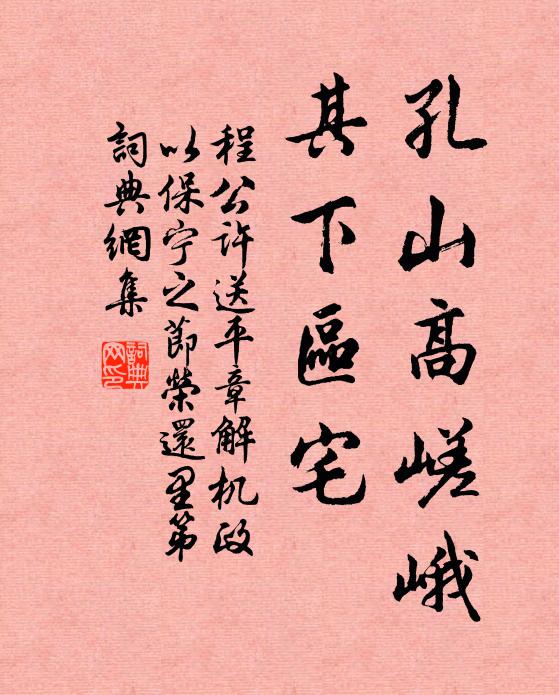 孔山高嵯峨
其下區宅
程公许送平章解机政
以保宁之節榮還里第
詞典網集
詞典網印